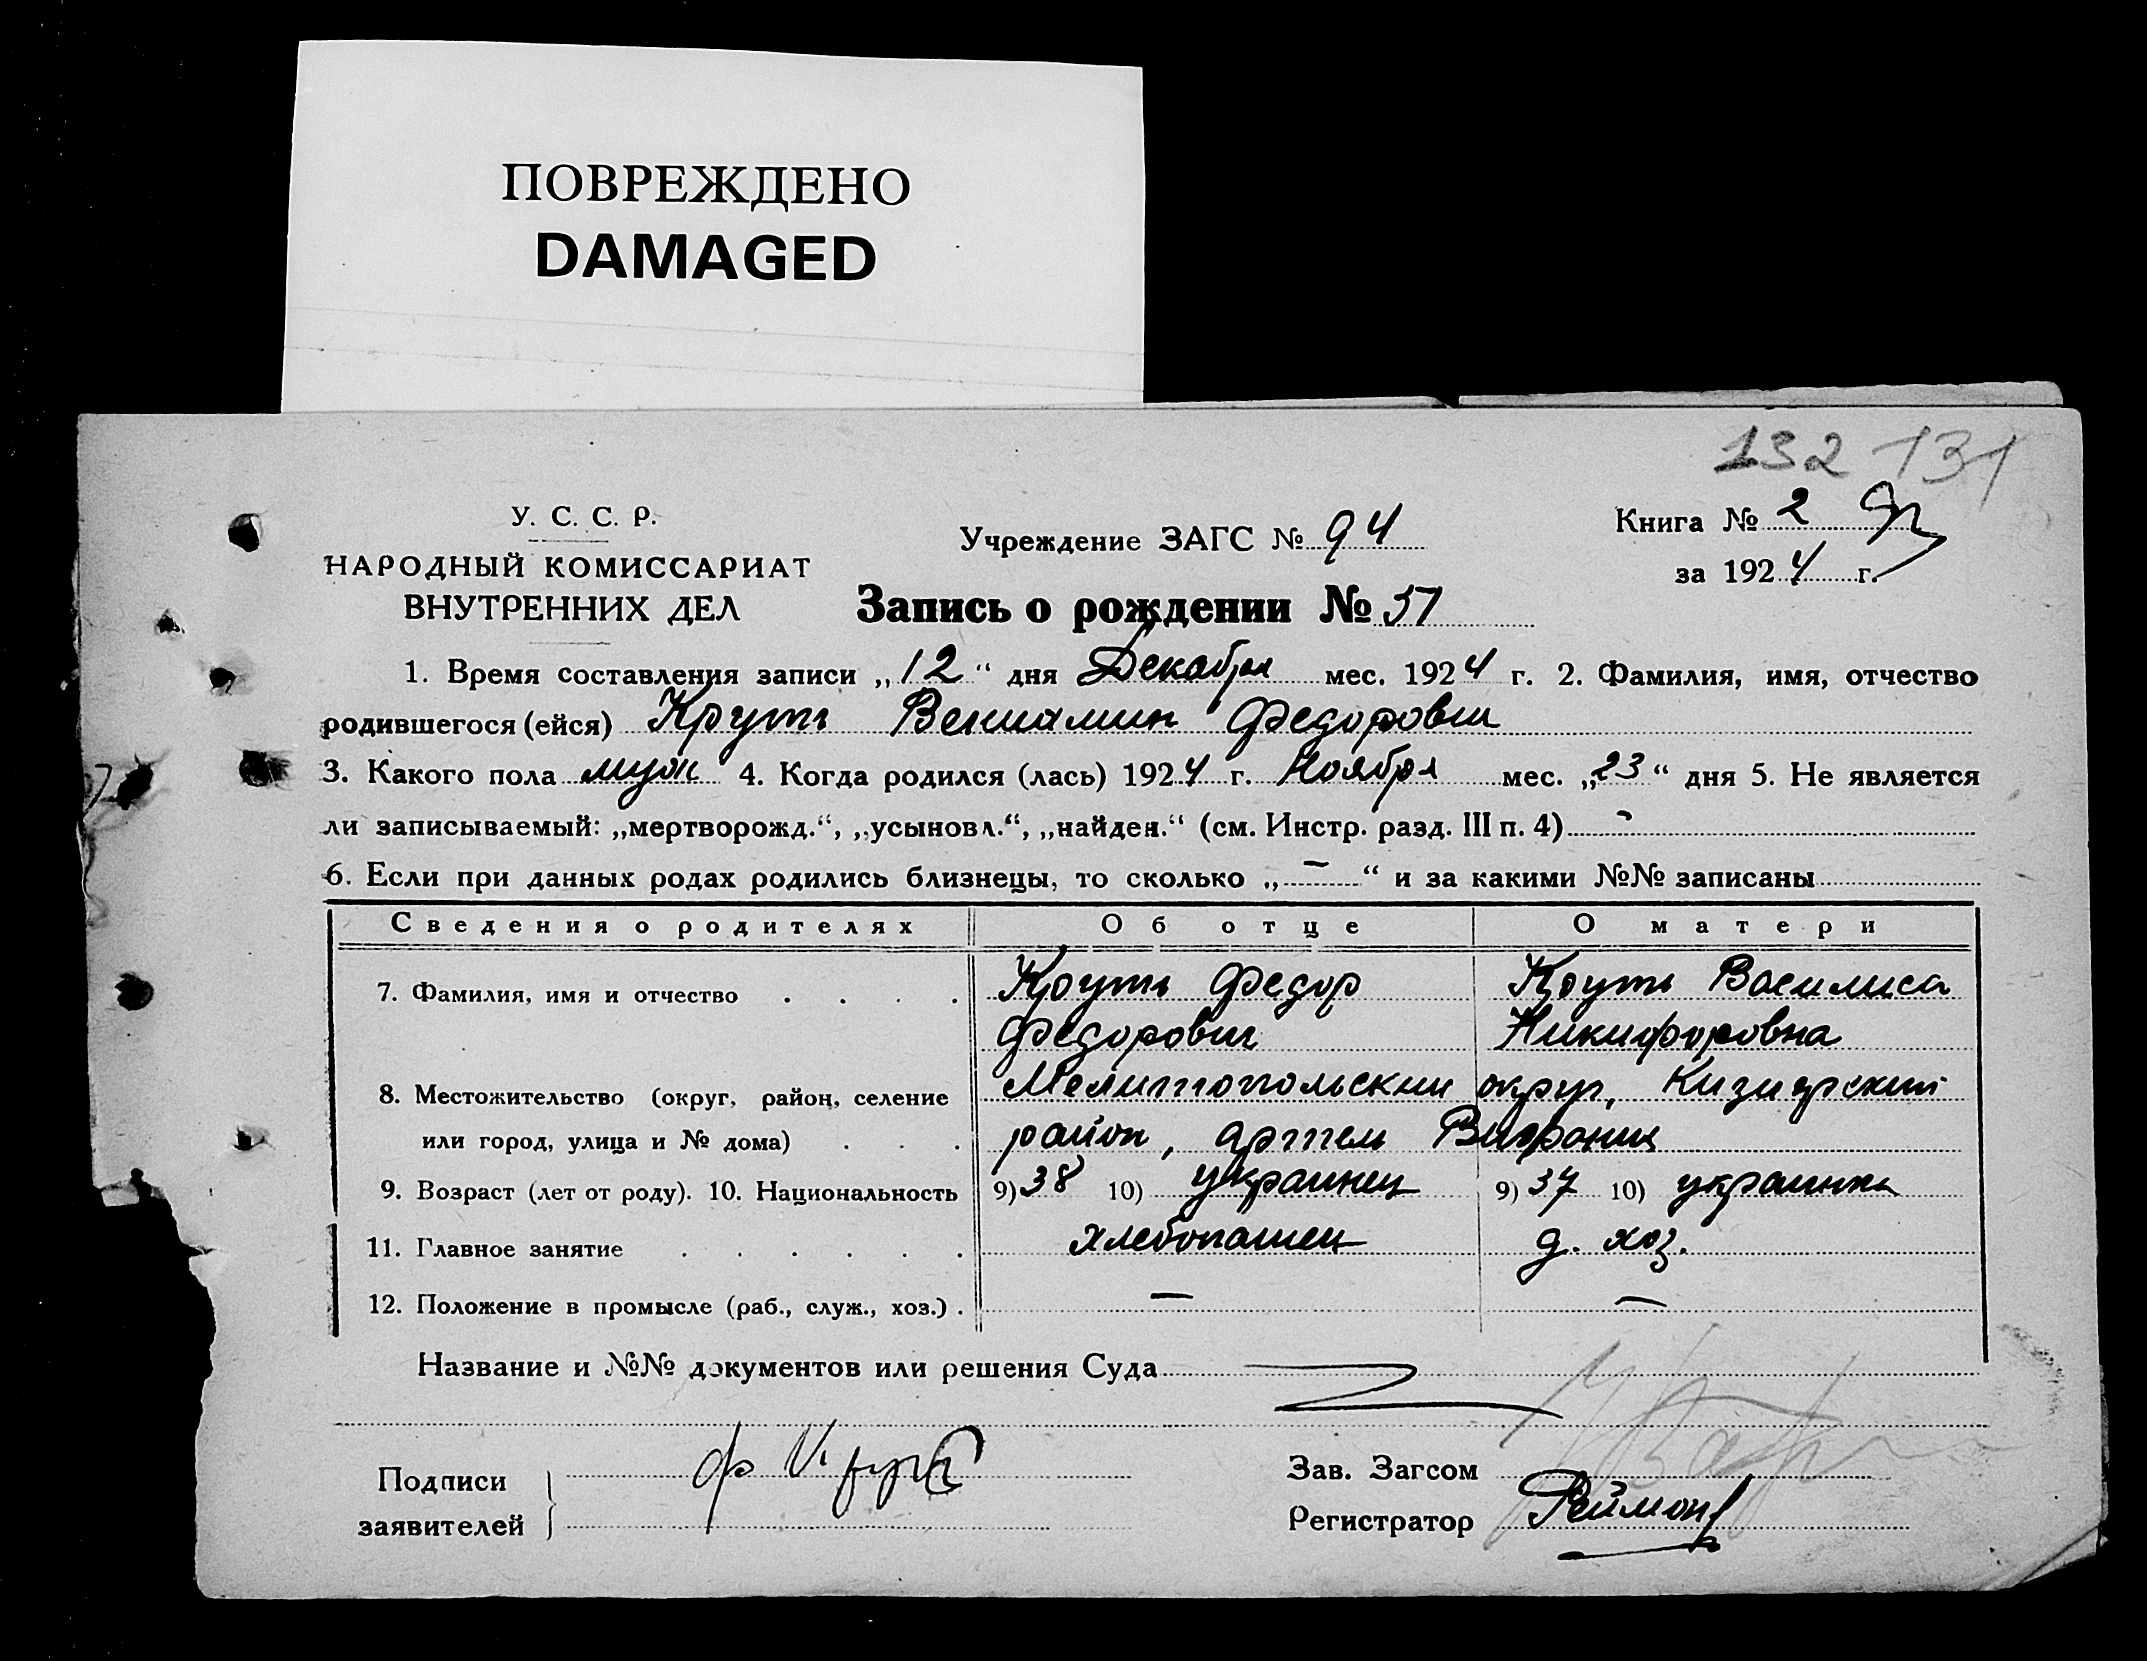 ПОВРЕЖДЕНО
DAMAGED
132 131
У. С. С. Р.
НАРОДНЫЙ КОМИССАРИАТ
ВНУТРЕННИХ ДЕЛ
Учреждение ЗАГС № 94
Книга № 2
за 1924 г.
Запись о рождении № 51
1. Время составления записи „12“ дня Декабря мес. 1924 г. 2. Фамилия, имя, отчество
родившегося (ейся) Круть Вениамин Федорович
3. Какого пола муж 4. Когда родился (лась) 1924 г. Ноября мес. „23“ дня 5. Не является
ли записываемый: „мертворожд.“, „усыновл.“, „найден.“ (см. Инстр. разд. III п. 4) -
6. Если при данных родах родились близнецы, то сколько „—“ и за какими №№ записаны
Сведения о родителях Об отце О матери
7. Фамилия, имя и отчество . . . . Круть Федор Круть Василиса
Федорович Никифоровна
8. Местожительство (округ, район, селение Мелитопольский округ, Кизиярский
или город, улица и № дома) . . . район, артель
9. Возраст (лет от роду). 10. Национальность 9) 38 10) украинец 9) 37 10) украинка
11. Главное занятие . . . . . . хлебопашец д. хоз.
12. Положение в промысле (раб., служ., хоз.) . — —
Название и №№ документов или решения Суда
Подписи
заявителей
ф Круть
Зав. Загсом
Регистратор